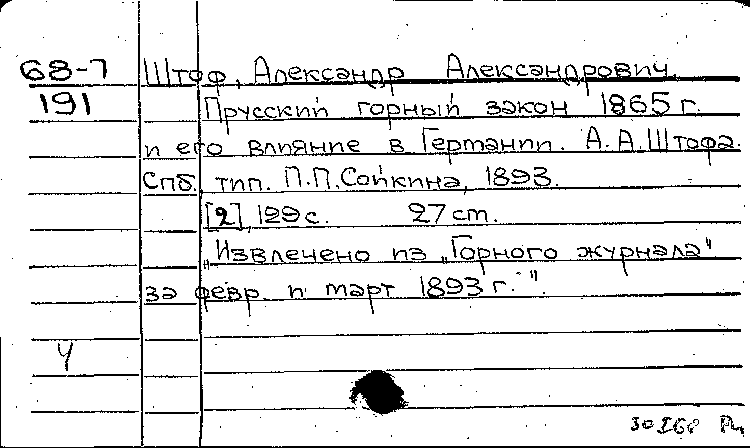 68-7 Штоф, Александр Александрович.
191 Прусский горный закон 1865 г.
и его влияние в Германии. А.А.Штофа.
Спб., тип. П.П.Сойкина, 1893.
[2], 129 с. 27 cm.
„Извлечено из „Горного журнала"
за февр. и март 1893 г."
Ч